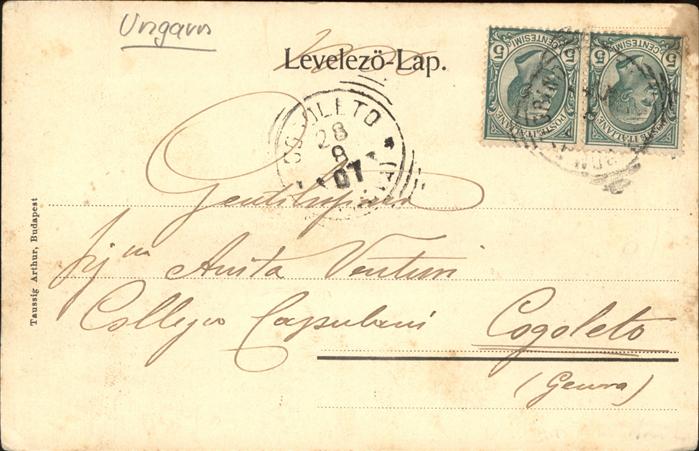 Ungarn
Levelezö-Lap.
CENTESIMI 5
POSTE ITALIANE
5 CENTESIMI 5
POSTE ITALIANE
COGOLETO
28
8
07
Gentilissima
Sig.na Anita Venturi
Collegio
Cogoleto
(Genova)
Taussig Arthur, Budapest